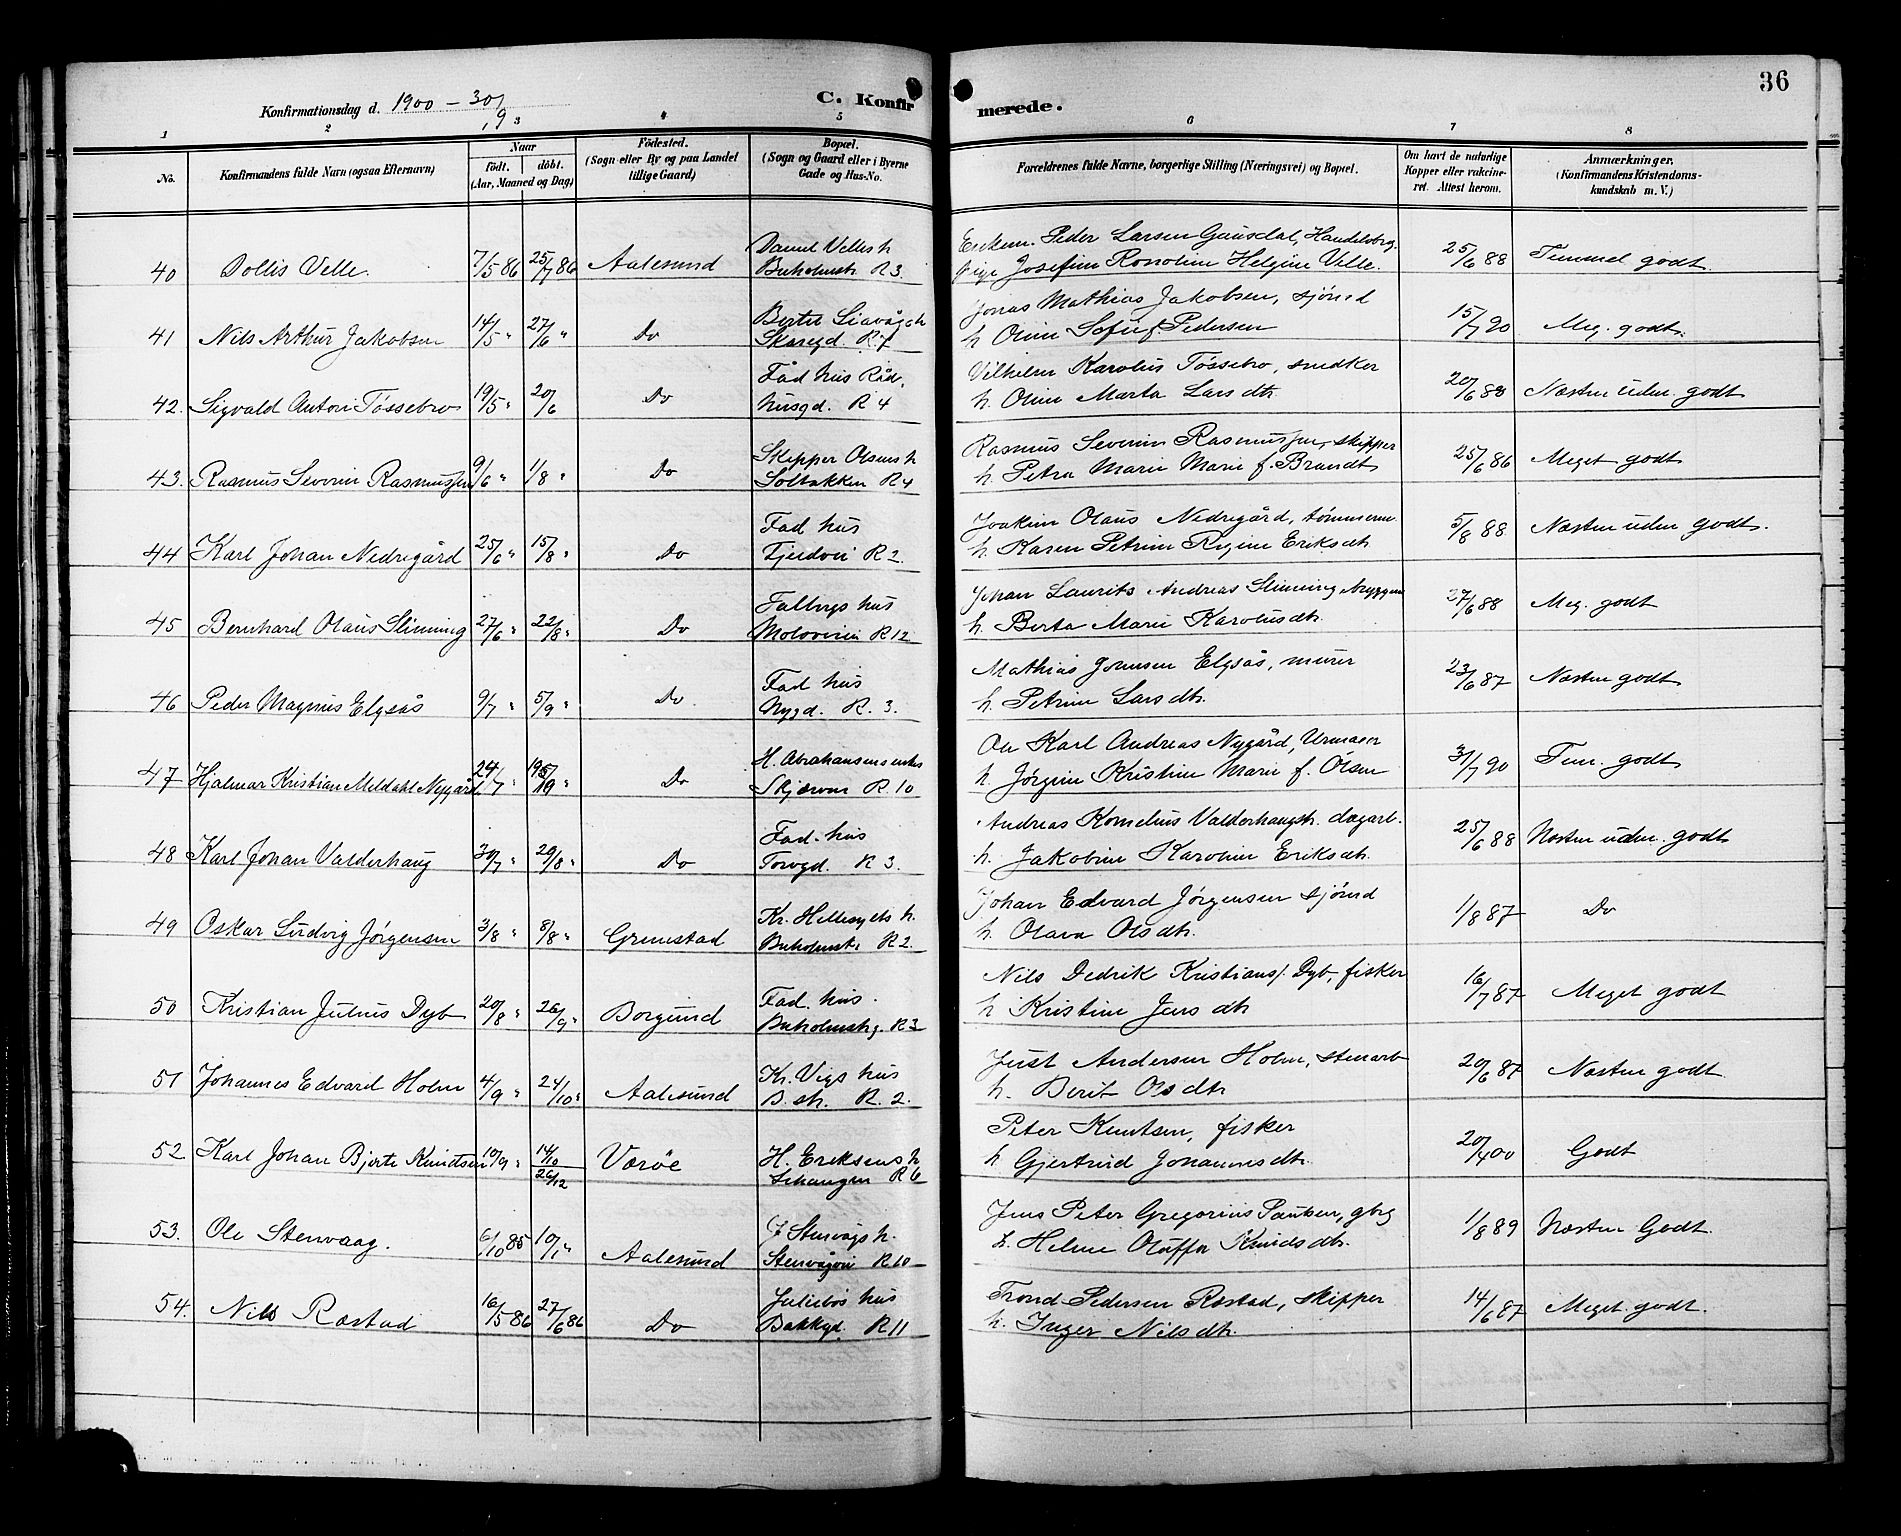 36
Konfirmationsdag d. 1900 – 30/9
C. Konfirmerede.
1 2 3 4 5 6 7 8
No. Konfirmandens fulde Navn (ogsaa Efternavn) Naar født. døbt. (Aar, Maaned og Dag) Fødested. (Sogn eller By og paa Landet tillige Gaard) Bopæl. (Sogn og Gaard eller i Byerne Gade og Hus-No. Forældrenes fulde Navne, borgerlige Stilling (Næringsvei) og Bopæl. Om havt de naturlige Kopper eller vakcineret. Attest herom. Anmærkninger. (Konfirmandens Kristendomskundskab m. V.)
Peder Larsen Gausdal, Handelsbg.
40 Dollis Velle. 7/5 86 25/7 86 Aalesund Buholmstr R 3. pige Josefine Helgine Velle. 25/6 88 Temmel godt.
Jonas Mathias Jakobsen, sjømd
41 Nils Arthur Jakobsen 14/5 " 27/6 " Do Skaregd. R. 7 h. Oline Sofie f. Pedersen 15/7 90 Meg. godt.
Fad hus Råd, Vilhelm Karolus Tøssebro, snedker
42. Sigvald Anton Tøssebro 19/5 " 20/6 Do husgd. R 4 h. Oline Marta Larsdtr. Næsten udm. godt
Skipper Olsens h Rasmus Severin Rasmussen, skipper
43. Rasmus Severin Rasmussen 9/6 " 1/8 " Do Solbakken R 4 h. Petra Marie Marie f. Brandt 25/6 86 Meget godt
Fad hus Joakim Olaus Nedregård, tømmerm.
44 Karl Johan Nedregård 25/6 " 15/8 " Do Fjeldvei R 2. h. Karen Petrine Regine Eriksdtr. 5/8 88 Næsten udm godt.
hus Johan Laurits Andreas Slinning bryggem
45 Bernhard Olaus Slinning 27/6 " 22/8 " Do Moloveien R 12 h. Berta Marie Karolusdtr. 27/6 88 Meg. godt
Fad hus Mathias Jonsen Elgsås, murer
46 Peder Magnus Elgsås 9/7 " 5/9 " Do. Nygd. R. 3. h. Petrine Larsdtr. 23/6 87 Næsten godt
H. Abrahamsens Ole Karl Andreas Nygård, Urmager
47 Hjalmar Kristian Meldahl Nygård 24/7 " Do Skjærven R. 10 h. Jørgine Kristine Marie f. Olsen 31/7 90 Tem. godt
Fad. hus Andreas Kornelius Valderhaugstr. dagarb.
48 Karl Johan Valderhaug 30/7 " 29/8 " Do Torvgd. R 3. h. Jakobine Karoline Eriksdtr. 25/6 88 Næsten udm. godt
Kr. Hellesylts h. Johan Edvard Jørgensen sjømd
49 Oskar Ludvig Jørgensen 3/8 " 8/8 " Grimstad Buholmstr R 2. h. Olava Olsdtr. 1/8 87 Do
Fad. hus. Nils Dedrik Kristians/. Dyb, fisker
50 Kristian Julius Dyb 20/8 " 26/9 " Borgund Buholmstrg. R 3 h Kristine Jensdtr 16/7 87 Meget godt
Kr. Vigs hus Just Andersen Holm, stenarb
51 Johannes Edvard Holm 4/9 " 24/10 " Aalesund B. str. R. 2. h. Berit Olsdtr 20/6 87 Næsten godt
Peter Knutsen, fisker
52 Karl Johan Bjerte Knudtsen 10/9 " 14/10 26/12 Værøe H. Eriksens h R 6 h Gjertrud Johannesdtr. 20/4 00 Godt
J. Stenvågs h. Jens Peter Gregorius Paulsen, gbrg
53. Ole Stenvaag. 6/10 85 10/1 " Aalesund Stenvågvei R 10 h. Helene Oluffa Knudsdtr. 1/8 89 Næsten Godt.
Juliebøs hus Trond Pedersen Rastad, skipper
54. Nils Ræstad 16/5 86 27/6 86 Do Bakkgd. R 11 h. Inger Nilsdtr. 14/6 87 Meget godt.